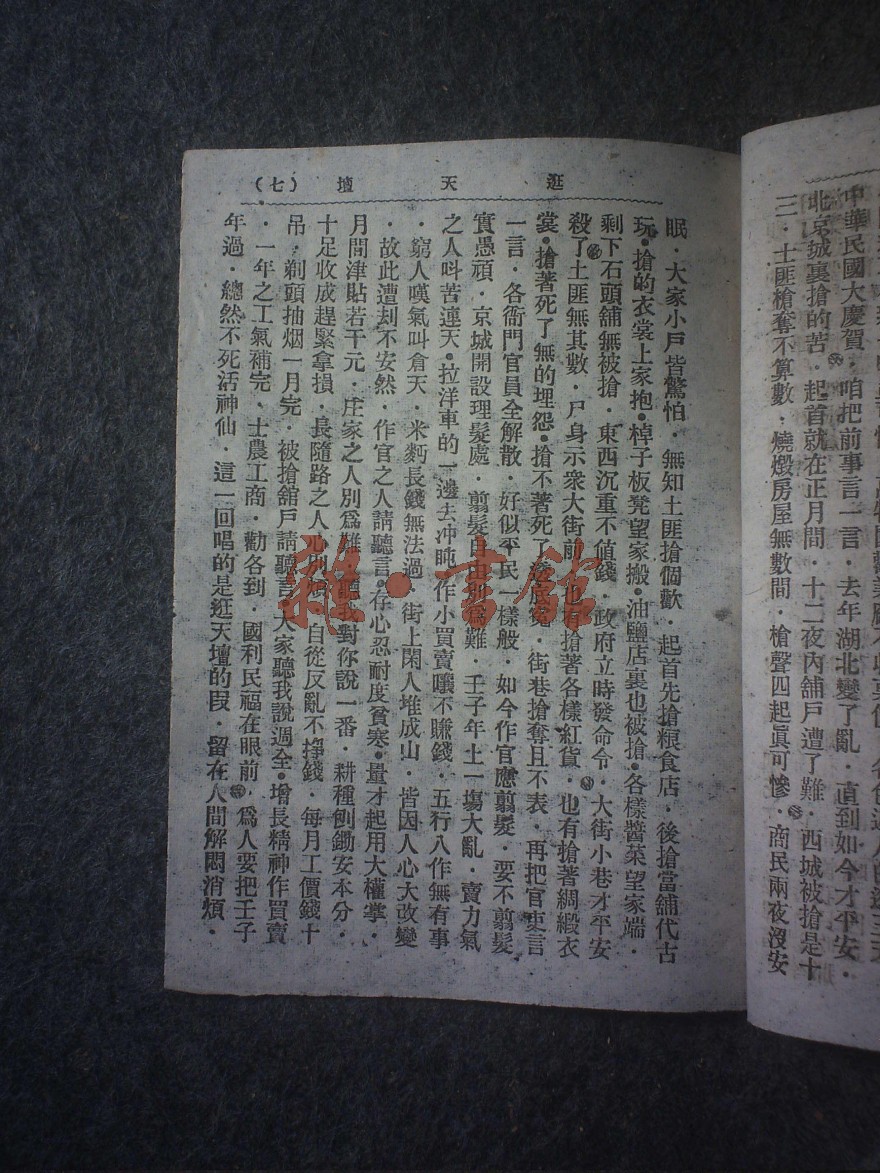 中華民國大慶賀．咱把前事言一言．去年湖北變了亂．直到如今才平安．
北京城裏搶的苦．起首就在正月間．十二夜內舖戶遭了難．西城被搶是十
三．土匪槍奪不算數．燒燬房屋無數間．槍聲四起眞可慘．商民兩夜沒安
逛天壇（七）
眠．大家小戶皆驚怕．無知土匪搶個歡．起首先搶粮食店．後搶當舖代古
玩．搶的衣裳上家抱．棹子板凳望家搬．油鹽店裏也被搶．各樣醬菜望家端．
剩下石頭舖無被搶．東西沉重不値錢．政府立時發命令．大街小巷才平安
殺了土匪無其數．尸身示衆大街前．也有搶著各樣紅貨．也有搶著綢緞衣
裳．搶著死了無的埋怨．搶不著死了．街巷搶奪且不表．再把官吏言
一言．各衙門官員全解散．好似平民一樣般．如今作官應翦髮．要不翦髮
實愚頑．京城開設理髮處．翦髮自由別爲難．壬子年上一塲大亂．賣力氣
之人呌苦連天．拉洋車的一邊去冲盹．作小買賣嚷不賺錢．五行八作無有事
．窮人嘆氣叫倉天．米麪長錢無法過．街上閑人堆成山．皆因人心大改變
．故此遭刦不安然．作官之人請聽言．存心忍耐度貧寒．量才起用大權掌．
月間津貼若干元．庄家之人別爲難．聽我對你說一番．耕種刨鋤安本分．
十足收成趕緊拿損．長隨路之人心別煩．自從反亂不掙錢．每月工價錢十
吊．剃頭抽烟一月完．被搶舖戶請聽言．大家聽我說週全．增長精神作買賣
．一年之工氣補完．士農工商．勸各到．國利民福在眼前．爲人要把壬子
年過．總然不死活神仙．這一回唱的是逛天壇的段．留在人間解悶消煩．
雜·書館